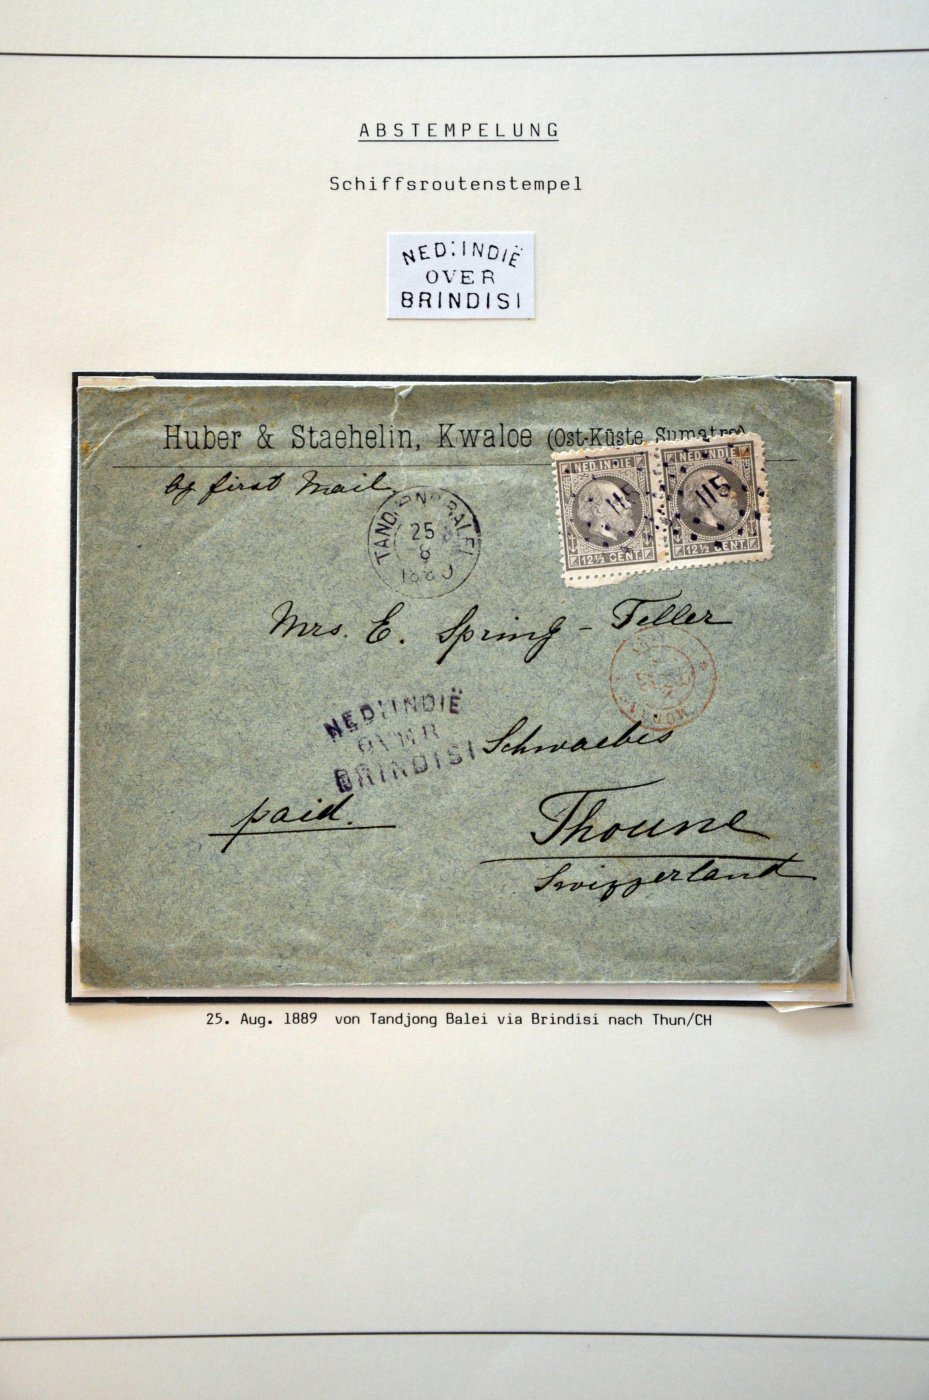 ABSTEMPELUNG
Schiffsroutenstempel
NED: INDIË
OVER
BRINDISI
Huber & Staehelin, Kwaloe (Ost-Küste Sumatra)
by first Mail
NED. INDIE NED. INDIE
115 115
12½ CENT. 12½ CENT.
TANDJONG BALEI
25 8
6
1889
Mrs. E. Spring - Feller
NED: INDIË
OVER
BRINDISI
Schwaebis
paid.
Thoune
Swizzerland
25. Aug. 1889 von Tandjong Balei via Brindisi nach Thun/CH